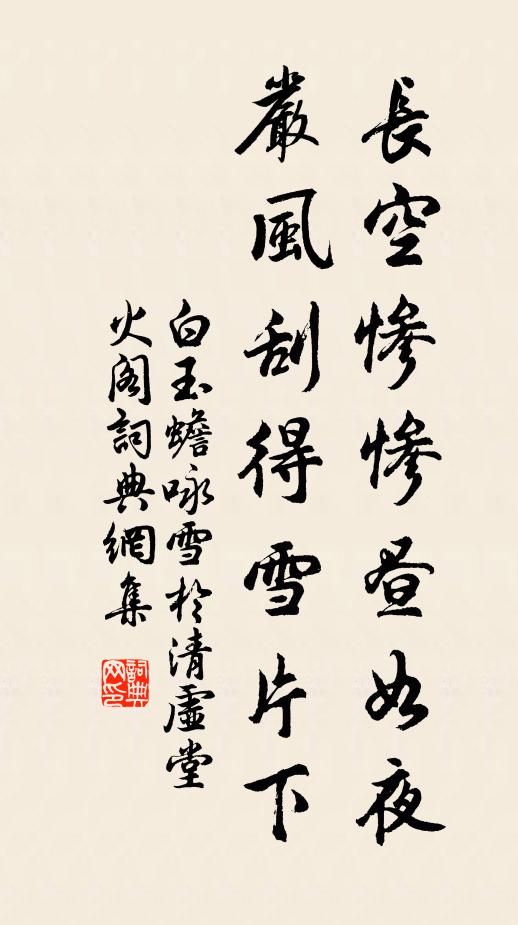 長空慘慘昼如夜
嚴風刮得雪片下
白玉蟾咏雪於清虛堂
火阁詞典網集
詞典
网印